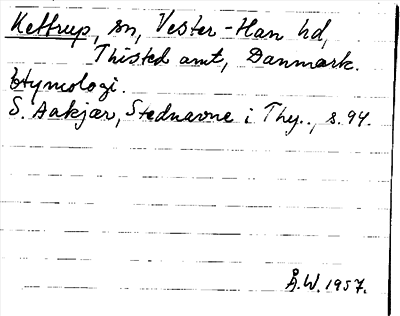 Kettrup, sn, Vester-Han hd,
Thisted amt, Danmark.
Etymologi.
S. Aakjær, Stednavne i Thy.., s. 94.
Å.W. 1957.